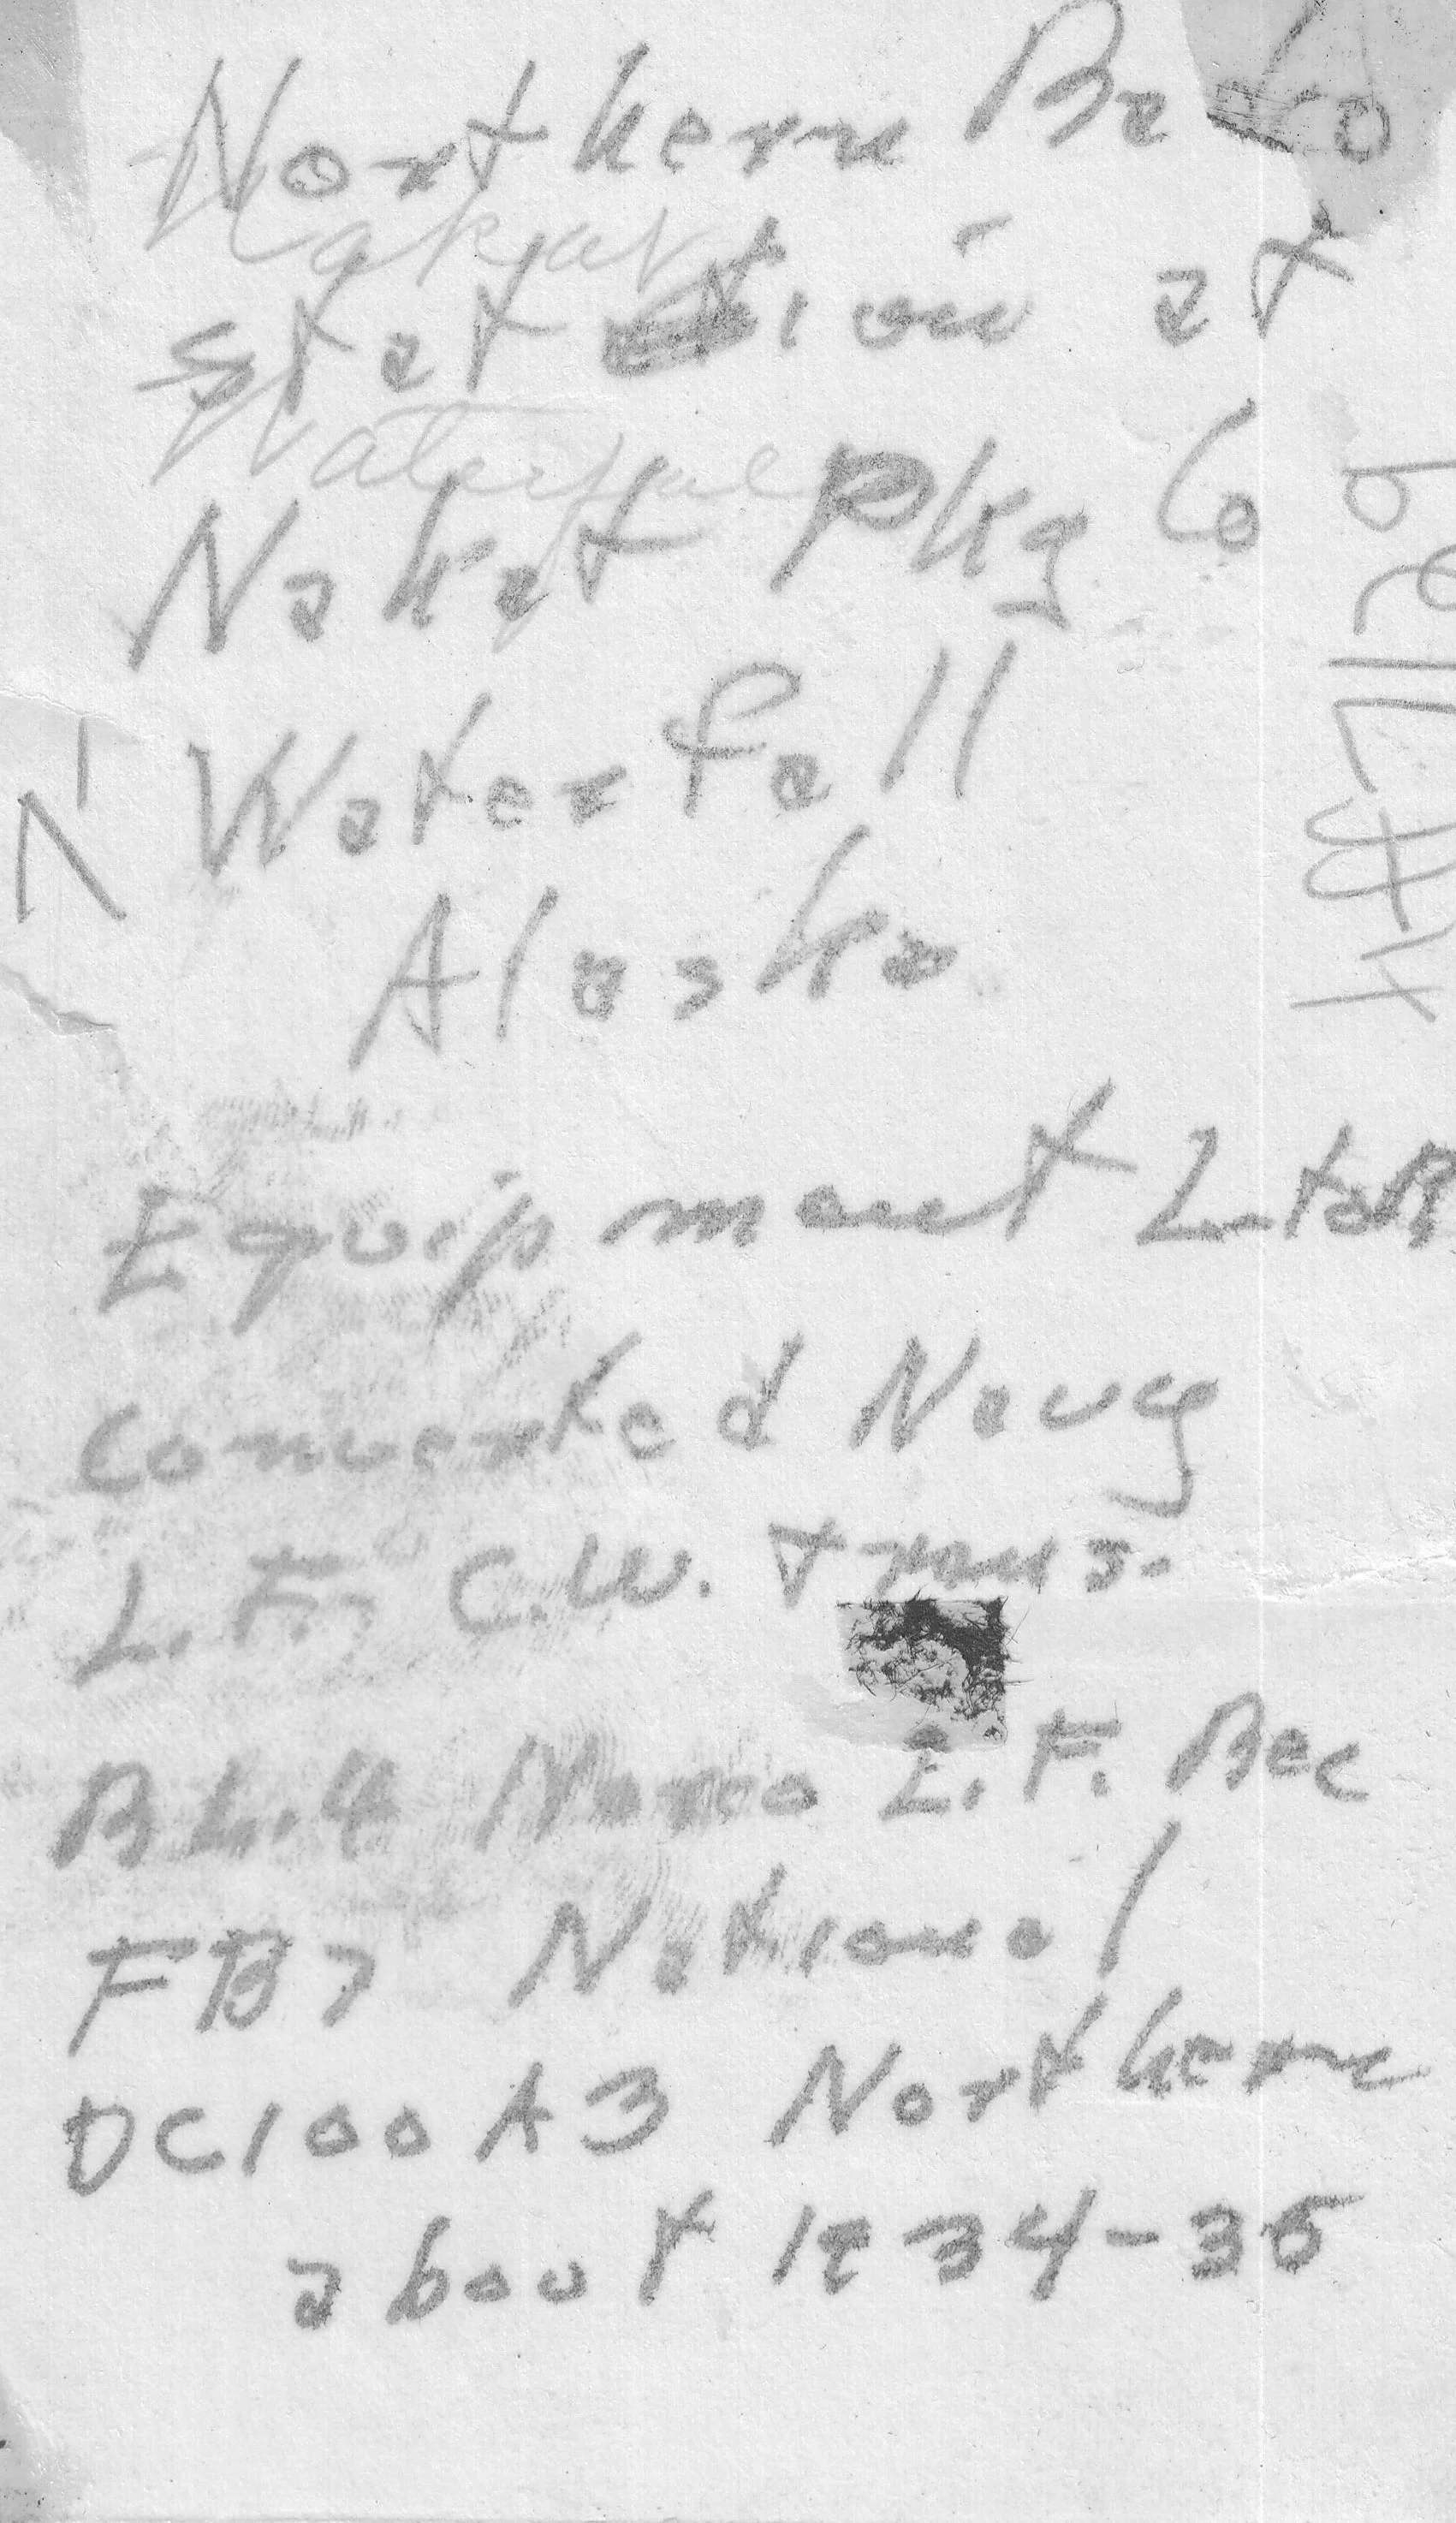 Northern Ra io
Nakat
station at
Waterfall
Nakat Pkg Co
Waterfall
Alaska
Equipment L to R
converted Navy
L.F. C.W. trans.
L.F. Rec
FB7 National
DC100A3 Northern
about 1934-35